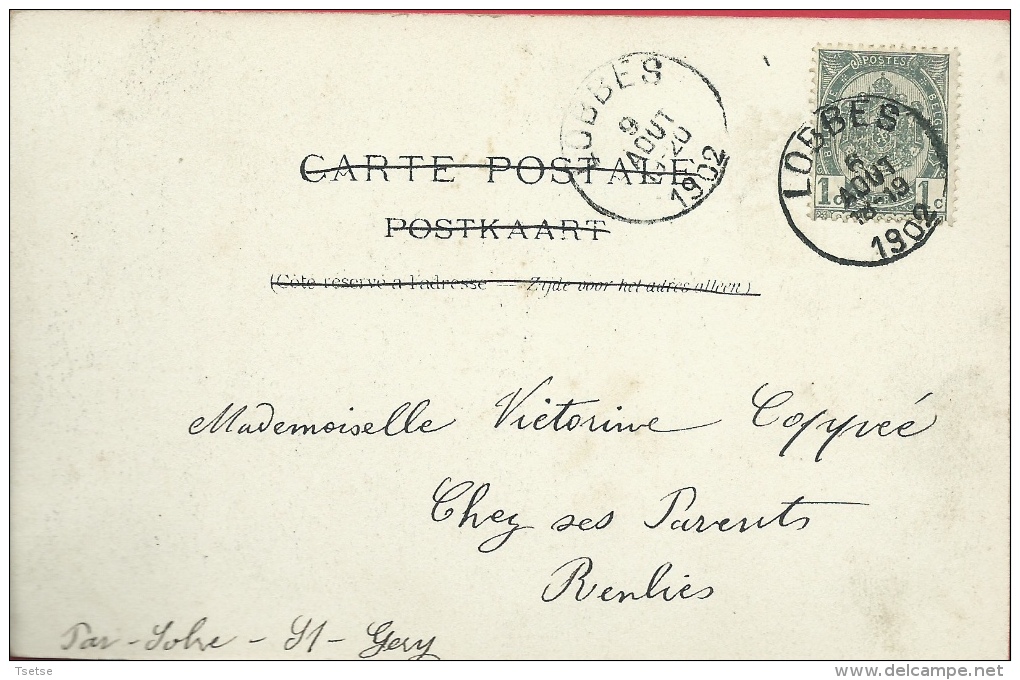 LOBBES
9
AOUT
1902
POSTES
LOBBES
6
AOUT
18-19
1902
1c 1c
CARTE POSTALE
POSTKAART
(Côté réservé à l'adresse — Zijde voor het adres alleen)
Mademoiselle Victorine Copyvéé
Chez ses Parents
Renlies
Par - Solre - St - Gery
Tsetse
www.delcampe.net